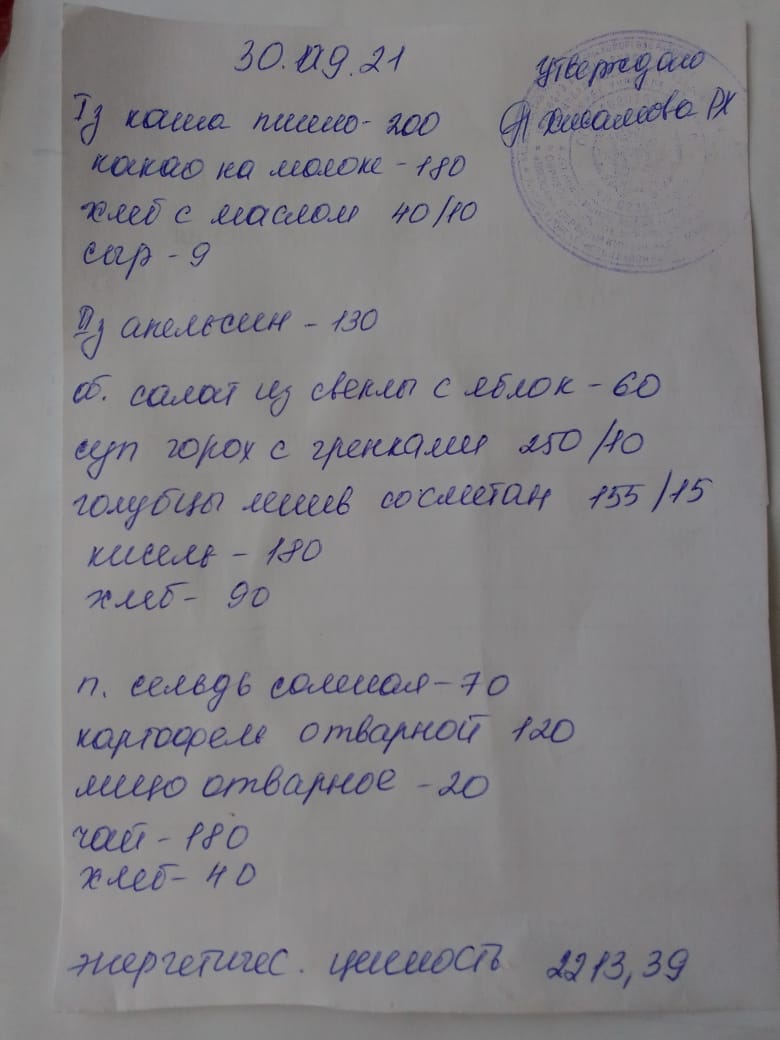 30.09.21
Утверждаю
Хисамова РХ
Iз каша пшено - 200
какао на молоке - 180
хлеб с маслом 40/10
сыр - 9
IIз апельсин - 130
об. салат из свеклы с яблок - 60
суп горох с гренками 250/10
голубцы ленив со сметан 155/15
кисель - 180
хлеб - 90
п. сельдь соленая - 70
картофель отварной 120
яйцо отварное - 20
чай - 180
хлеб - 40
энергетичес. ценность 2213,39